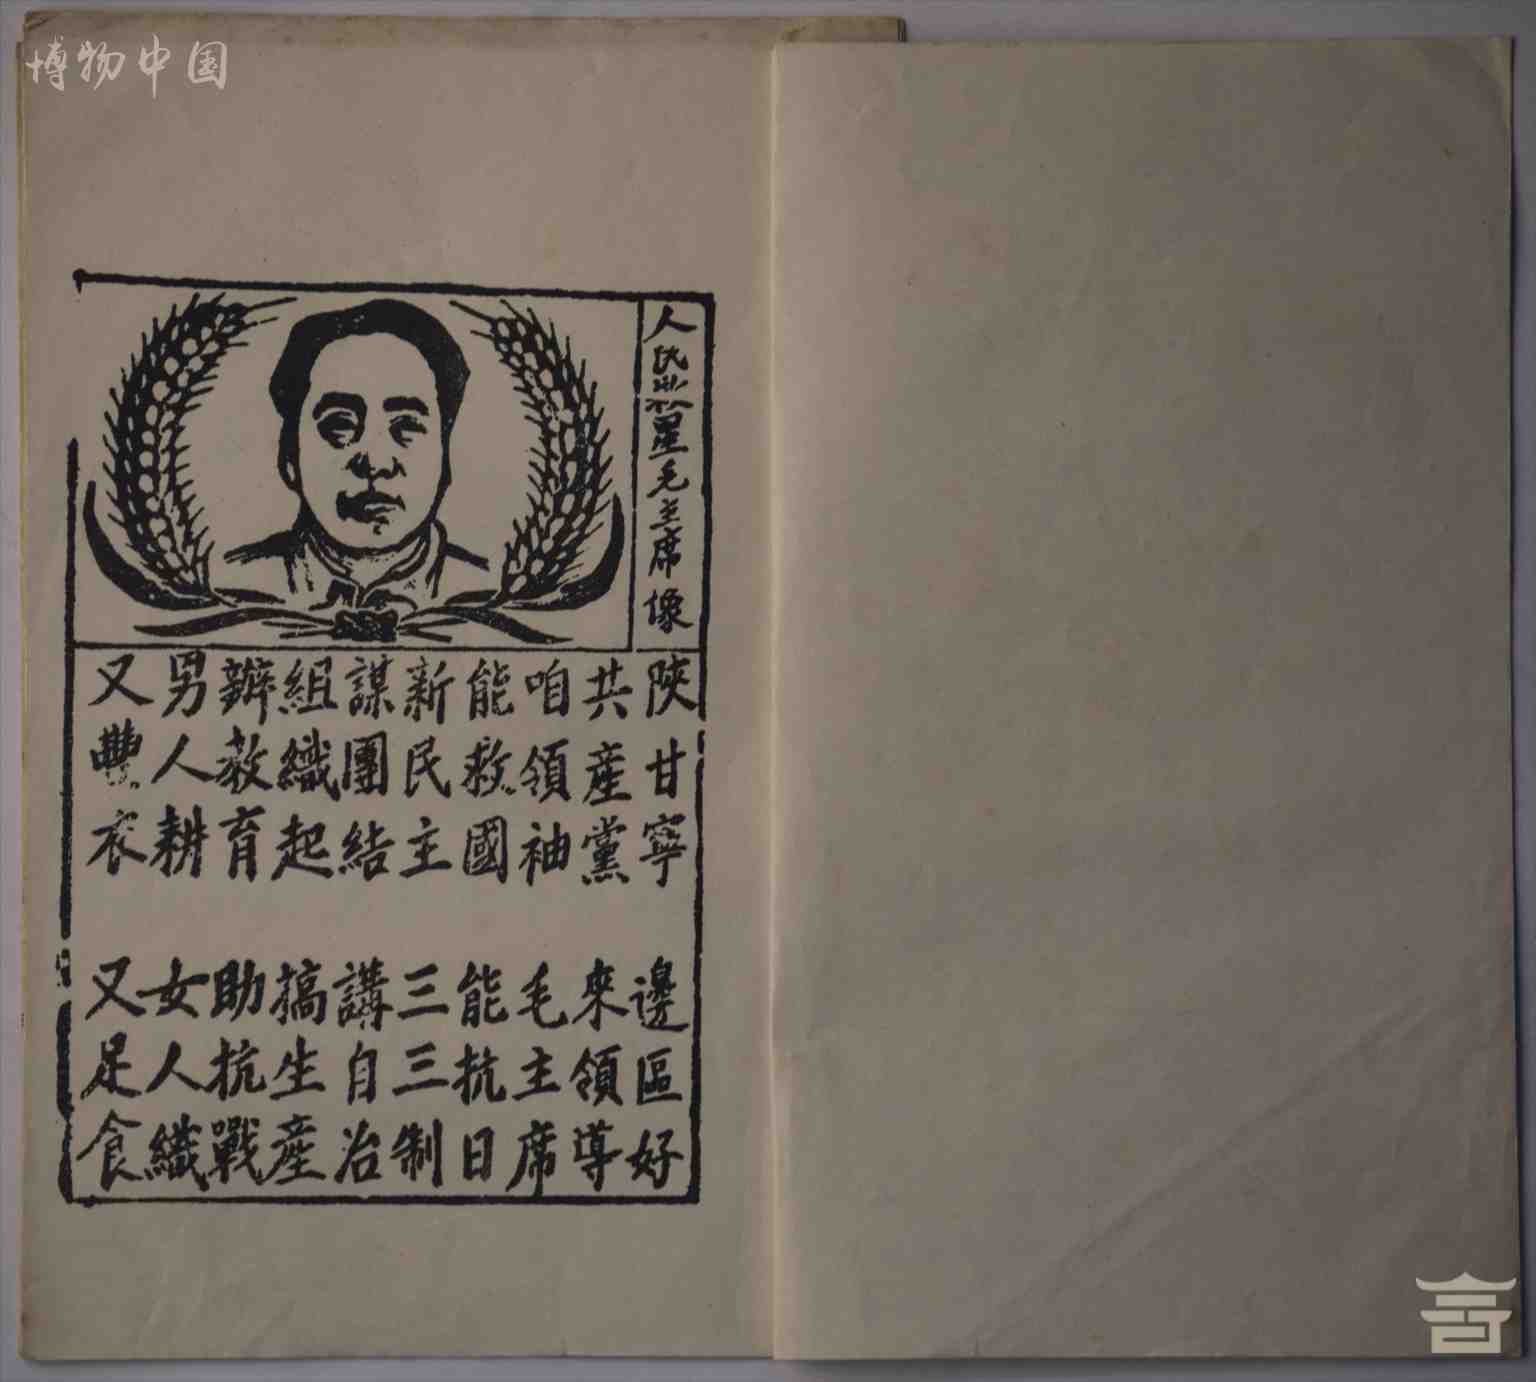 博物中国
人民救星毛主席像
陝甘寧 邊區好
共產黨 來領導
咱領袖 毛主席
能救國 能抗日
新民主 三三制
謀團結 講自治
組織起 搞生產
辦教育 助抗戰
男人耕 女人織
又豐衣 又足食